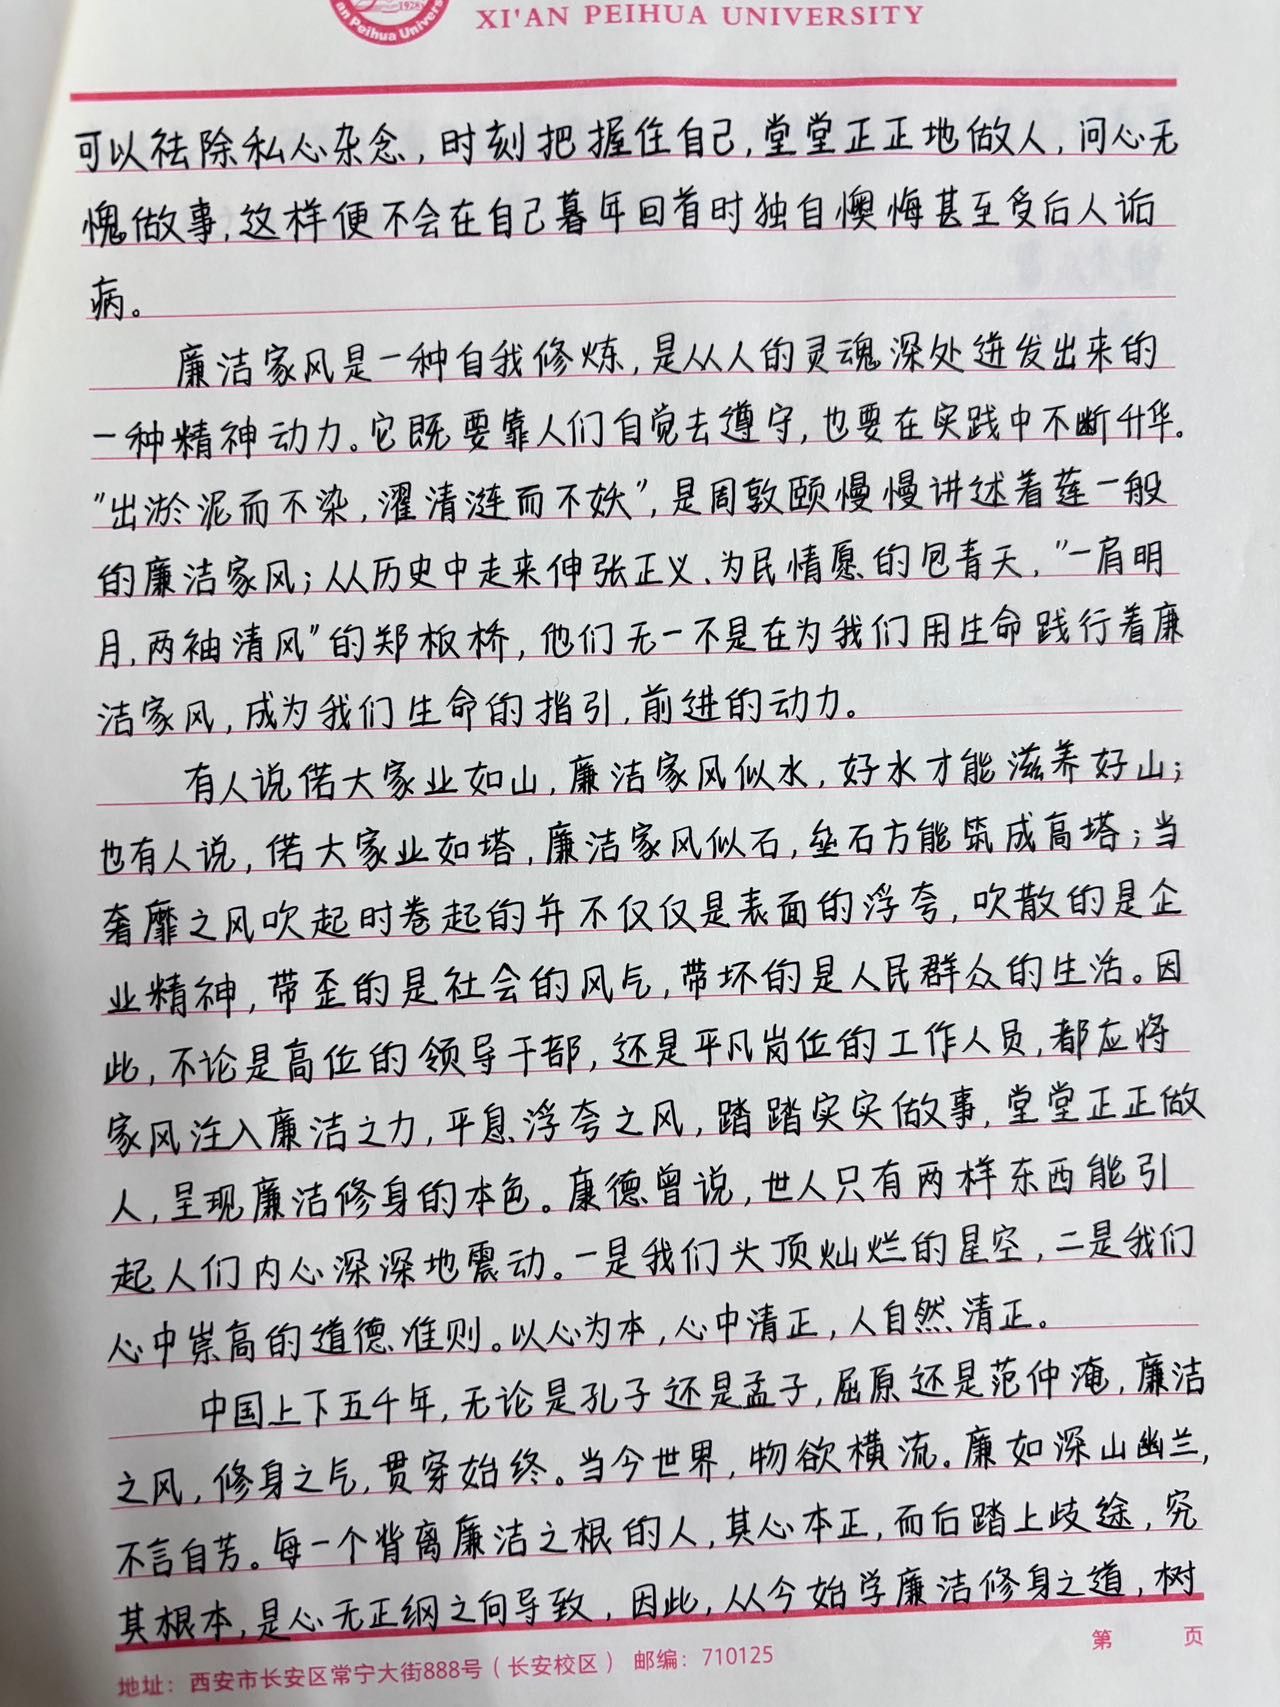 1928
an Peihua Univers
XI'AN PEIHUA UNIVERSITY
可以祛除私心杂念，时刻把握住自己，堂堂正正地做人，问心无
愧做事，这样便不会在自己暮年回首时独自懊悔甚至受后人诟
病。
廉洁家风是一种自我修炼，是从人的灵魂深处迸发出来的
一种精神动力。它既要靠人们自觉去遵守，也要在实践中不断升华。
"出淤泥而不染，濯清涟而不妖"，是周敦颐慢慢讲述着莲一般
的廉洁家风；从历史中走来伸张正义、为民情愿的包青天，"一肩明
月，两袖清风"的郑板桥，他们无一不是在为我们用生命践行着廉
洁家风，成为我们生命的指引，前进的动力。
有人说偌大家业如山，廉洁家风似水，好水才能滋养好山；
也有人说，偌大家业如塔，廉洁家风似石，垒石方能筑成高塔；当
奢靡之风吹起时卷起的并不仅仅是表面的浮夸，吹散的是企
业精神，带歪的是社会的风气，带坏的是人民群众的生活。因
此，不论是高位的领导干部，还是平凡岗位的工作人员，都应将
家风注入廉洁之力，平息浮夸之风，踏踏实实做事，堂堂正正做
人，呈现廉洁修身的本色。康德曾说，世人只有两样东西能引
起人们内心深深地震动。一是我们头顶灿烂的星空，二是我们
心中崇高的道德准则。以心为本，心中清正，人自然清正。
中国上下五千年，无论是孔子还是孟子，屈原还是范仲淹，廉洁
之风，修身之气，贯穿始终。当今世界，物欲横流。廉如深山幽兰，
不言自芳。每一个背离廉洁之根的人，其心本正，而后踏上歧途，究
其根本，是心无正纲之向导致，因此，从今始学廉洁修身之道，树
第 页
地址：西安市长安区常宁大街888号（长安校区） 邮编：710125